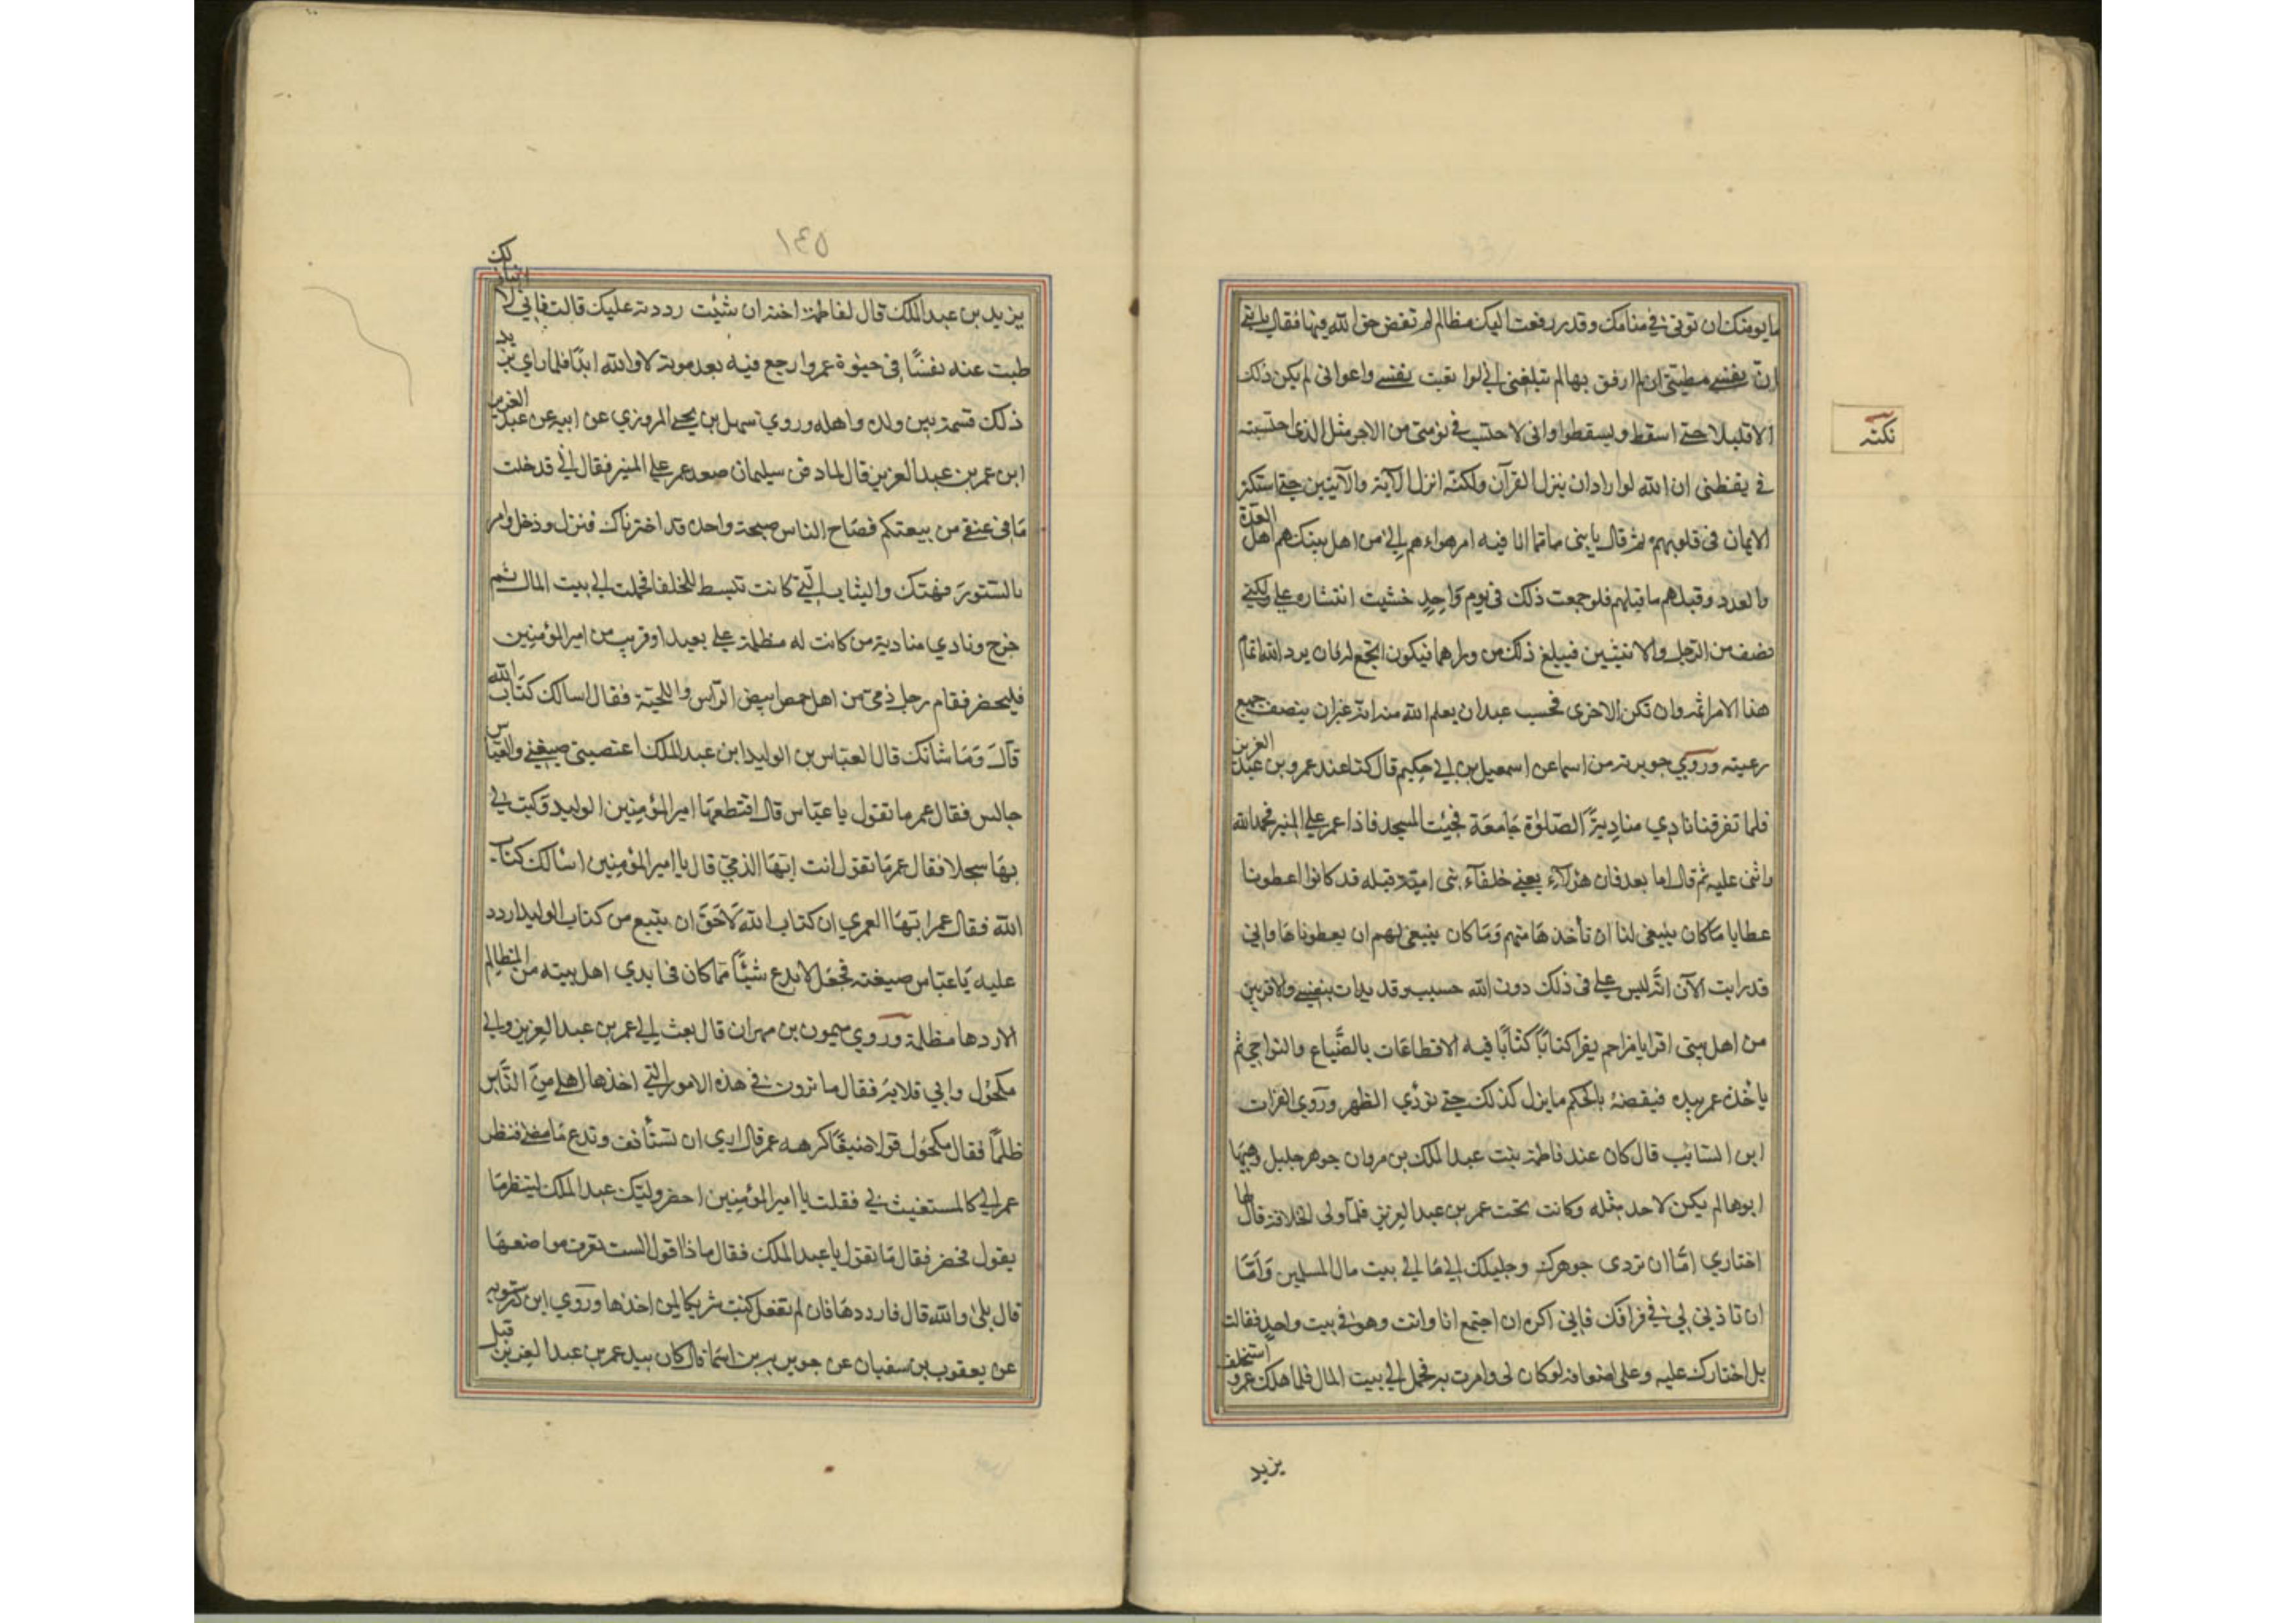 ما يومنك ان توتى فى منامك وقد رفعت اليك مظالم لم تقض حق الله فيها فقال يا بنى
ان نفسى مطيتى ان لم ارفق بها لم تبلغنى انى لو اتعبت نفسى واعوانى لم يكن ذلك
نكته
الا قليلا حتى اسقط ويسقطوا وانى لاحتسب فى نومتى من الاجر مثل الذى احتسبته
فى يقظتى ان الله لو اراد ان ينزل القرآن ولكنه انزل الآية والآيتين حتى استكثر
الايمان فى قلوبهم ثم قال يا بنى مما انا فيه امر هو اهم الى من اهل بيتك هم اهل العدة
والعدد وقبلهم ما قبلهم فلو جمعت ذلك فى يوم واحد خشيت انتشاره على ولكنى
نصف من الرجل والاثنين فيبلغ ذلك من وراهما فيكون انجع له فان يرد الله اتمام
هذا الامر اتمه وان تكن الاخرى فحسب عبد ان يعلم الله منه انه يحب ان ينصف جميع
رعيته وروي جويرية بن اسما عن اسمعيل بن ابي حكيم قال كنا عند عمر بن عبد العزيز
فلما تفرقنا نادي مناديه الصلوة جامعة فجئت المسجد فاذا عمر على المنبر فحمد الله
واثنى عليه ثم قال اما بعد فان هؤلاء يعنى خلفاء بنى امية قبله قد كانوا اعطونا
عطايا ما كان ينبغى لنا ان نأخذها منهم وما كان ينبغى لهم ان يعطوناها وانى
قد رايت الآن انه ليس على فى ذلك دون الله حسيب وقد بدات بنفسى والاقربين
من اهل بيتى اقرا يا مزاحم يقرا كتابا كتابا فيه الاقطاعات بالضياع والنواحي ثم
يأخذه عمر بيده فيقصه بالحكم ما يزل كذلك حتى نودي الظهر وروي الفرات
ابن السائب قال كان عند فاطمة بنت عبد الملك بن مروان جوهر جليل وهبها
ابوها لم يكن لاحد مثله وكانت تحت عمر بن عبد العزيز فلما ولى الخلافة قال لها
اختاري اما ان تردى جوهرك وحليلك الى مالى بيت مال المسلمين واما
ان تاذنى لي فى فراقك فانى اكره ان اجتمع انا وانت وهو فى بيت واحد فقالت
بل اختارك عليه وعلى اضعافه لو كان لى وامرت به فحمل الى بيت المال فلما هلك عمر واستخلف
يزيد
١٤٥
يزيد بن عبد الملك قال لفاطمة اخته ان شئت رددته عليك قالت فانى لا
طبت عنه نفسا فى حيوة عمر وارجع فيه بعد موته لا والله ابدا فلما راي يزيد
ذلك قسمه بين ولده واهله وروي سهل بن يحيى المروزي عن ابيه عن عبد العزيز
ابن عمر بن عبد العزيز قال لما دفن سليمان صعد عمر على المنبر فقال انى قد خلعت
ما فى عنقى من بيعتكم فصاح الناس صيحة واحدة قد اخترناك فنزل ودخل وامر
بالستور فهتكت والثياب التى كانت تبسط للخلفا فحملت الى بيت المال ثم
خرج ونادي مناديه من كانت له مظلمة على بعيد او قريب من امير المؤمنين
فليحضر فقام رجل ذمى من اهل حمص ابيض الراس واللحية فقال اسالك كتاب الله
قال وما شانك قال العباس بن الوليد ابن عبد الملك اغتصبنى ضيعتى والعباس
جالس فقال عمر ما تقول يا عباس قال اقتطعها امير المؤمنين الوليد وكتب لى
بها سجلا فقال عمر ما تقول انت ايها الذمى قال يا امير المؤمنين اسألك كتاب
الله فقال عمر ايها العمري ان كتاب الله لاحق ان يتبع من كتاب الوليد اردد
عليه يا عباس ضيعته فجعل لا يدع شيئا مما كان فى ايدي اهل بيته من المظالم
الا ردها مظلمة وروي ميمون بن مهران قال بعث الى عمر بن عبد العزيز والى
مكحول وابي قلابة فقال ما ترون فى هذه الامور التى اخذها اهلى من الناس
ظلما فقال مكحول قولا ضعيفا كرهه عمر قال اري ان تستأنف وتدع ما مضى فنظر
عمر الى كالمستغيث بى فقلت يا امير المؤمنين احضر ولدك عبد الملك لينظر ما
يقول فحضر فقال ما تقول يا عبد الملك فقال ماذا اقول الست تعرف مواضعها
قال بلى والله قال فارددها فان لم تفعل كنت شريكا لمن اخذها وروي ابن درستويه
عن يعقوب بن سفيان عن جويرية بن اسما قال كان بيد عمر بن عبد العزيز قبل